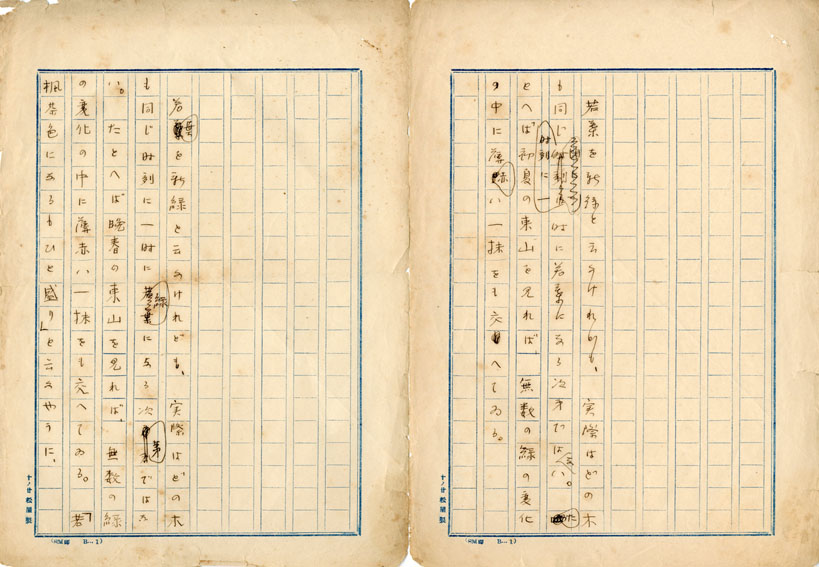 若葉を新緑と云ふけれども、実際はどの木
も同じ時刻に一時に若葉になる次第ではない。た
とへば初夏の東山を見れば 無数の緑の変化
の中に薄赤い一抹をも交へてゐる。
十ノ廿 松屋製
若葉を新緑と云ふけれども、実際はどの木
も同じ時刻に一時に緑になる次第ではな
い。たとへば晩春の東山を見れば、無数の緑
の変化の中に薄赤い一抹をも交へてゐる。「若
楓茶色になるもひと盛り」と云ふやうに、
十ノ廿 松屋製